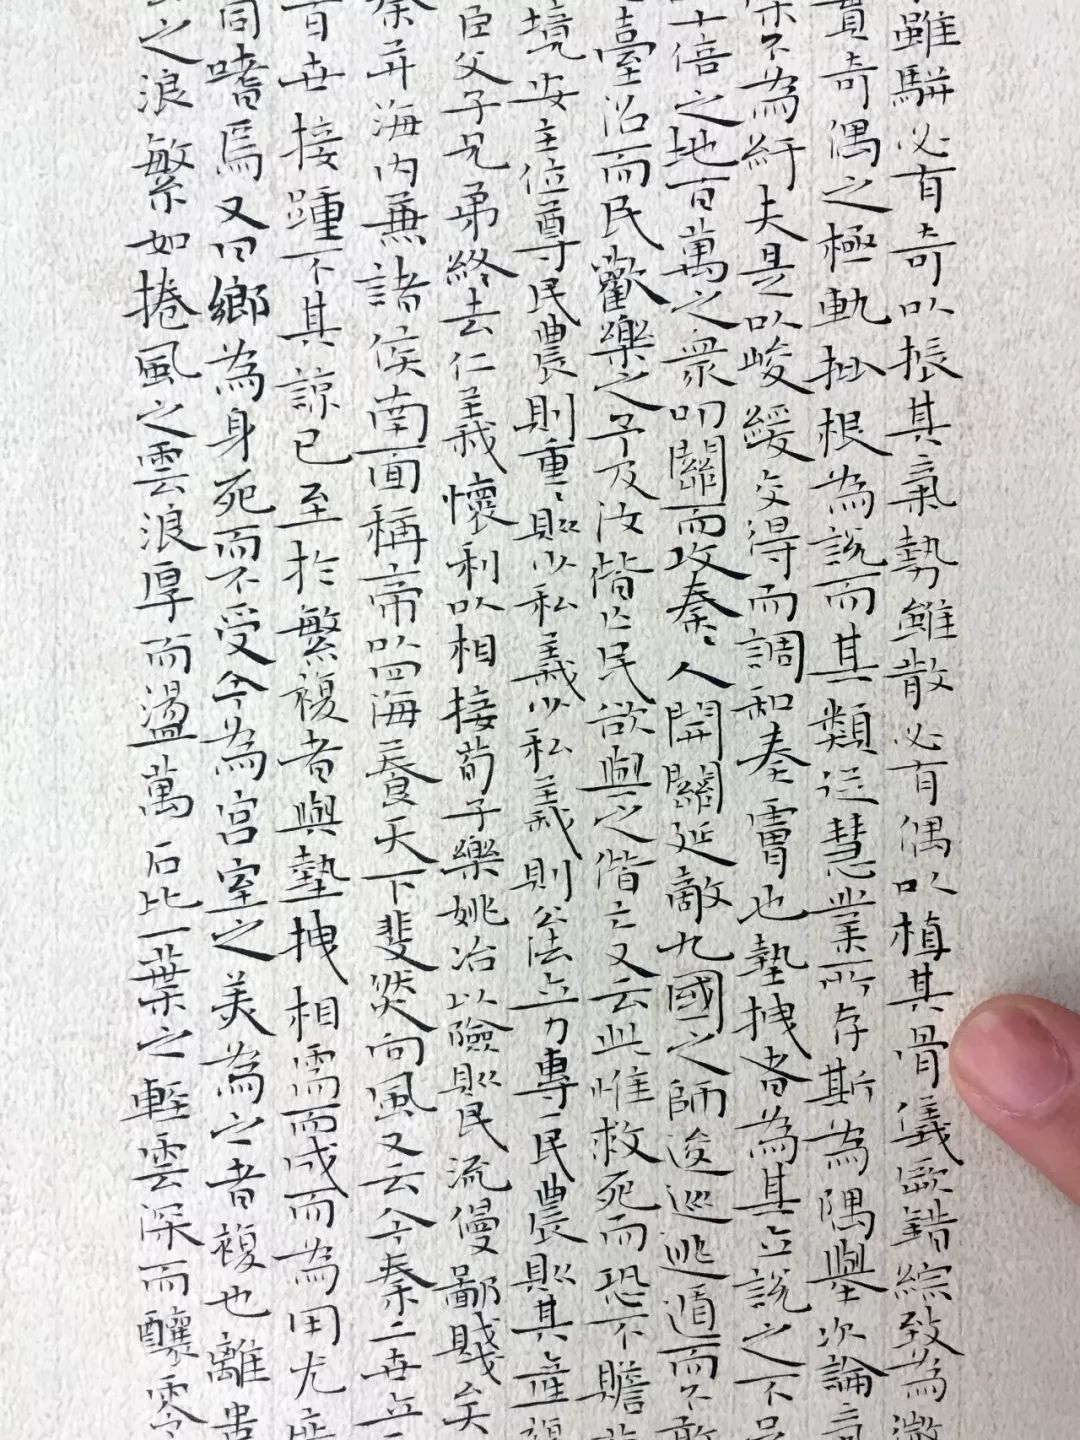 雖駢必有奇以振其氣勢雖散必有偶以植其骨儀厥錯綜致為微
貫奇偶之極軌批根為說而其類從慧業所存斯為隅舉次論奇
不為紆夫是以峻緩交得而調和奏膚也墊拽者為其立說之不足
十倍之地百萬之眾叩關而攻秦〻人開關延敵九國之師逡巡逃遁而不敢
臺沼而民歡樂之予及汝偕亡民欲與之偕亡又云此惟救死而恐不贍
境安主位尊民農則重〻則少私義少私義則公法立力專一民農則其產複
臣父子兄弟終去仁義懷利以相接荀子樂姚冶以險則民流僈鄙賤矣
秦并海內兼諸侯南面稱帝以四海養天下斐然向風又云今秦二世立
百世接踵不其諒已至於繁複者與墊拽相濡而成而為用尤
同嗜焉又曰鄉為身死而不受今為宮室之美為之者複也離
之浪繁如捲風之雲浪厚而盪萬石比一葉之輕雲深而釀零